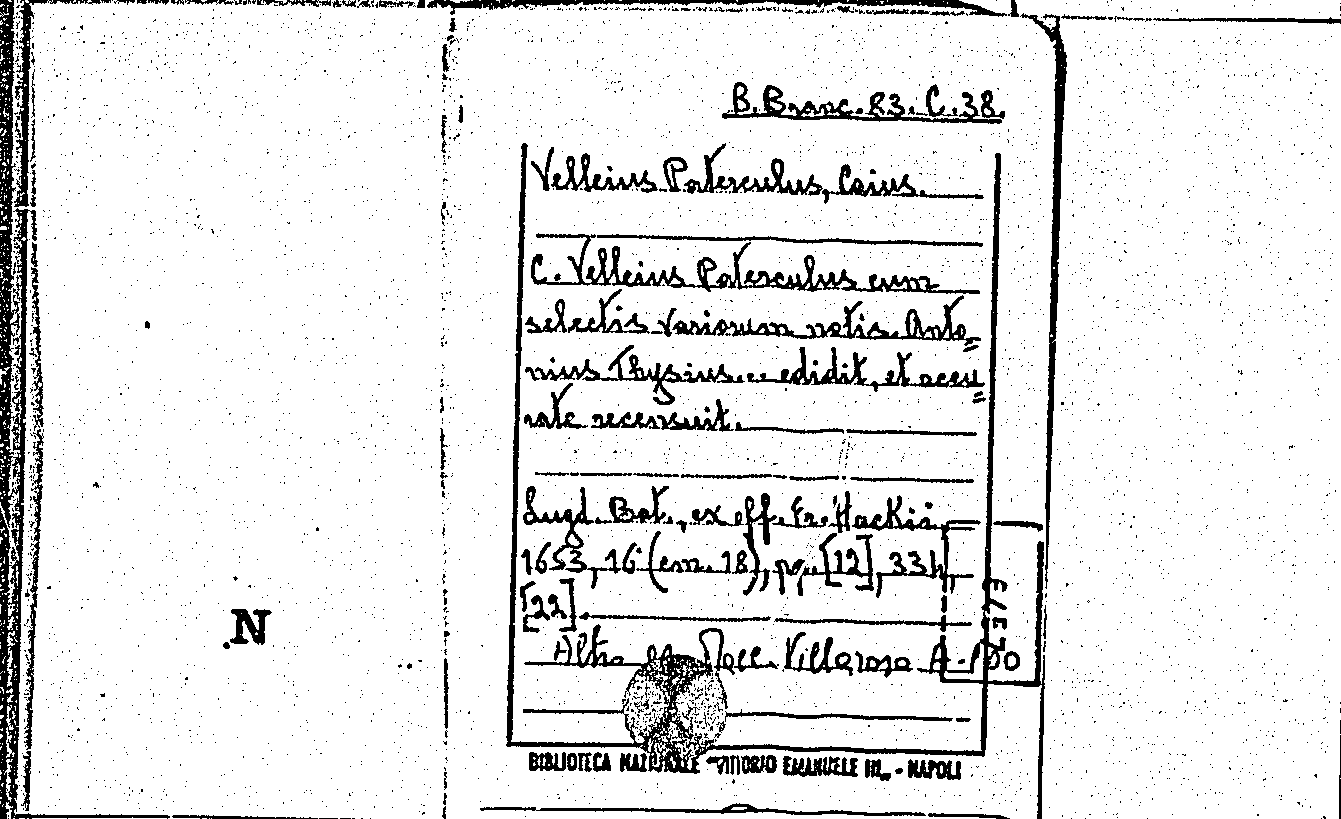 B. Branc. 83. C. 38.
Velleius Paterculus, Caius.
C. Velleius Paterculus cum
selectis variorum notis. Anto=
nius Thysius... edidit, et accu=
rate recensuit.
Lugd. Bat., ex off. Fr. Hackii,
1653, 16° (cm. 18), pp. [12],
[22].
Altro es. Racc. Villarosa A. 100
N
BIBLIOTECA NAZIONALE "VITTORIO EMANUELE III" - NAPOLI